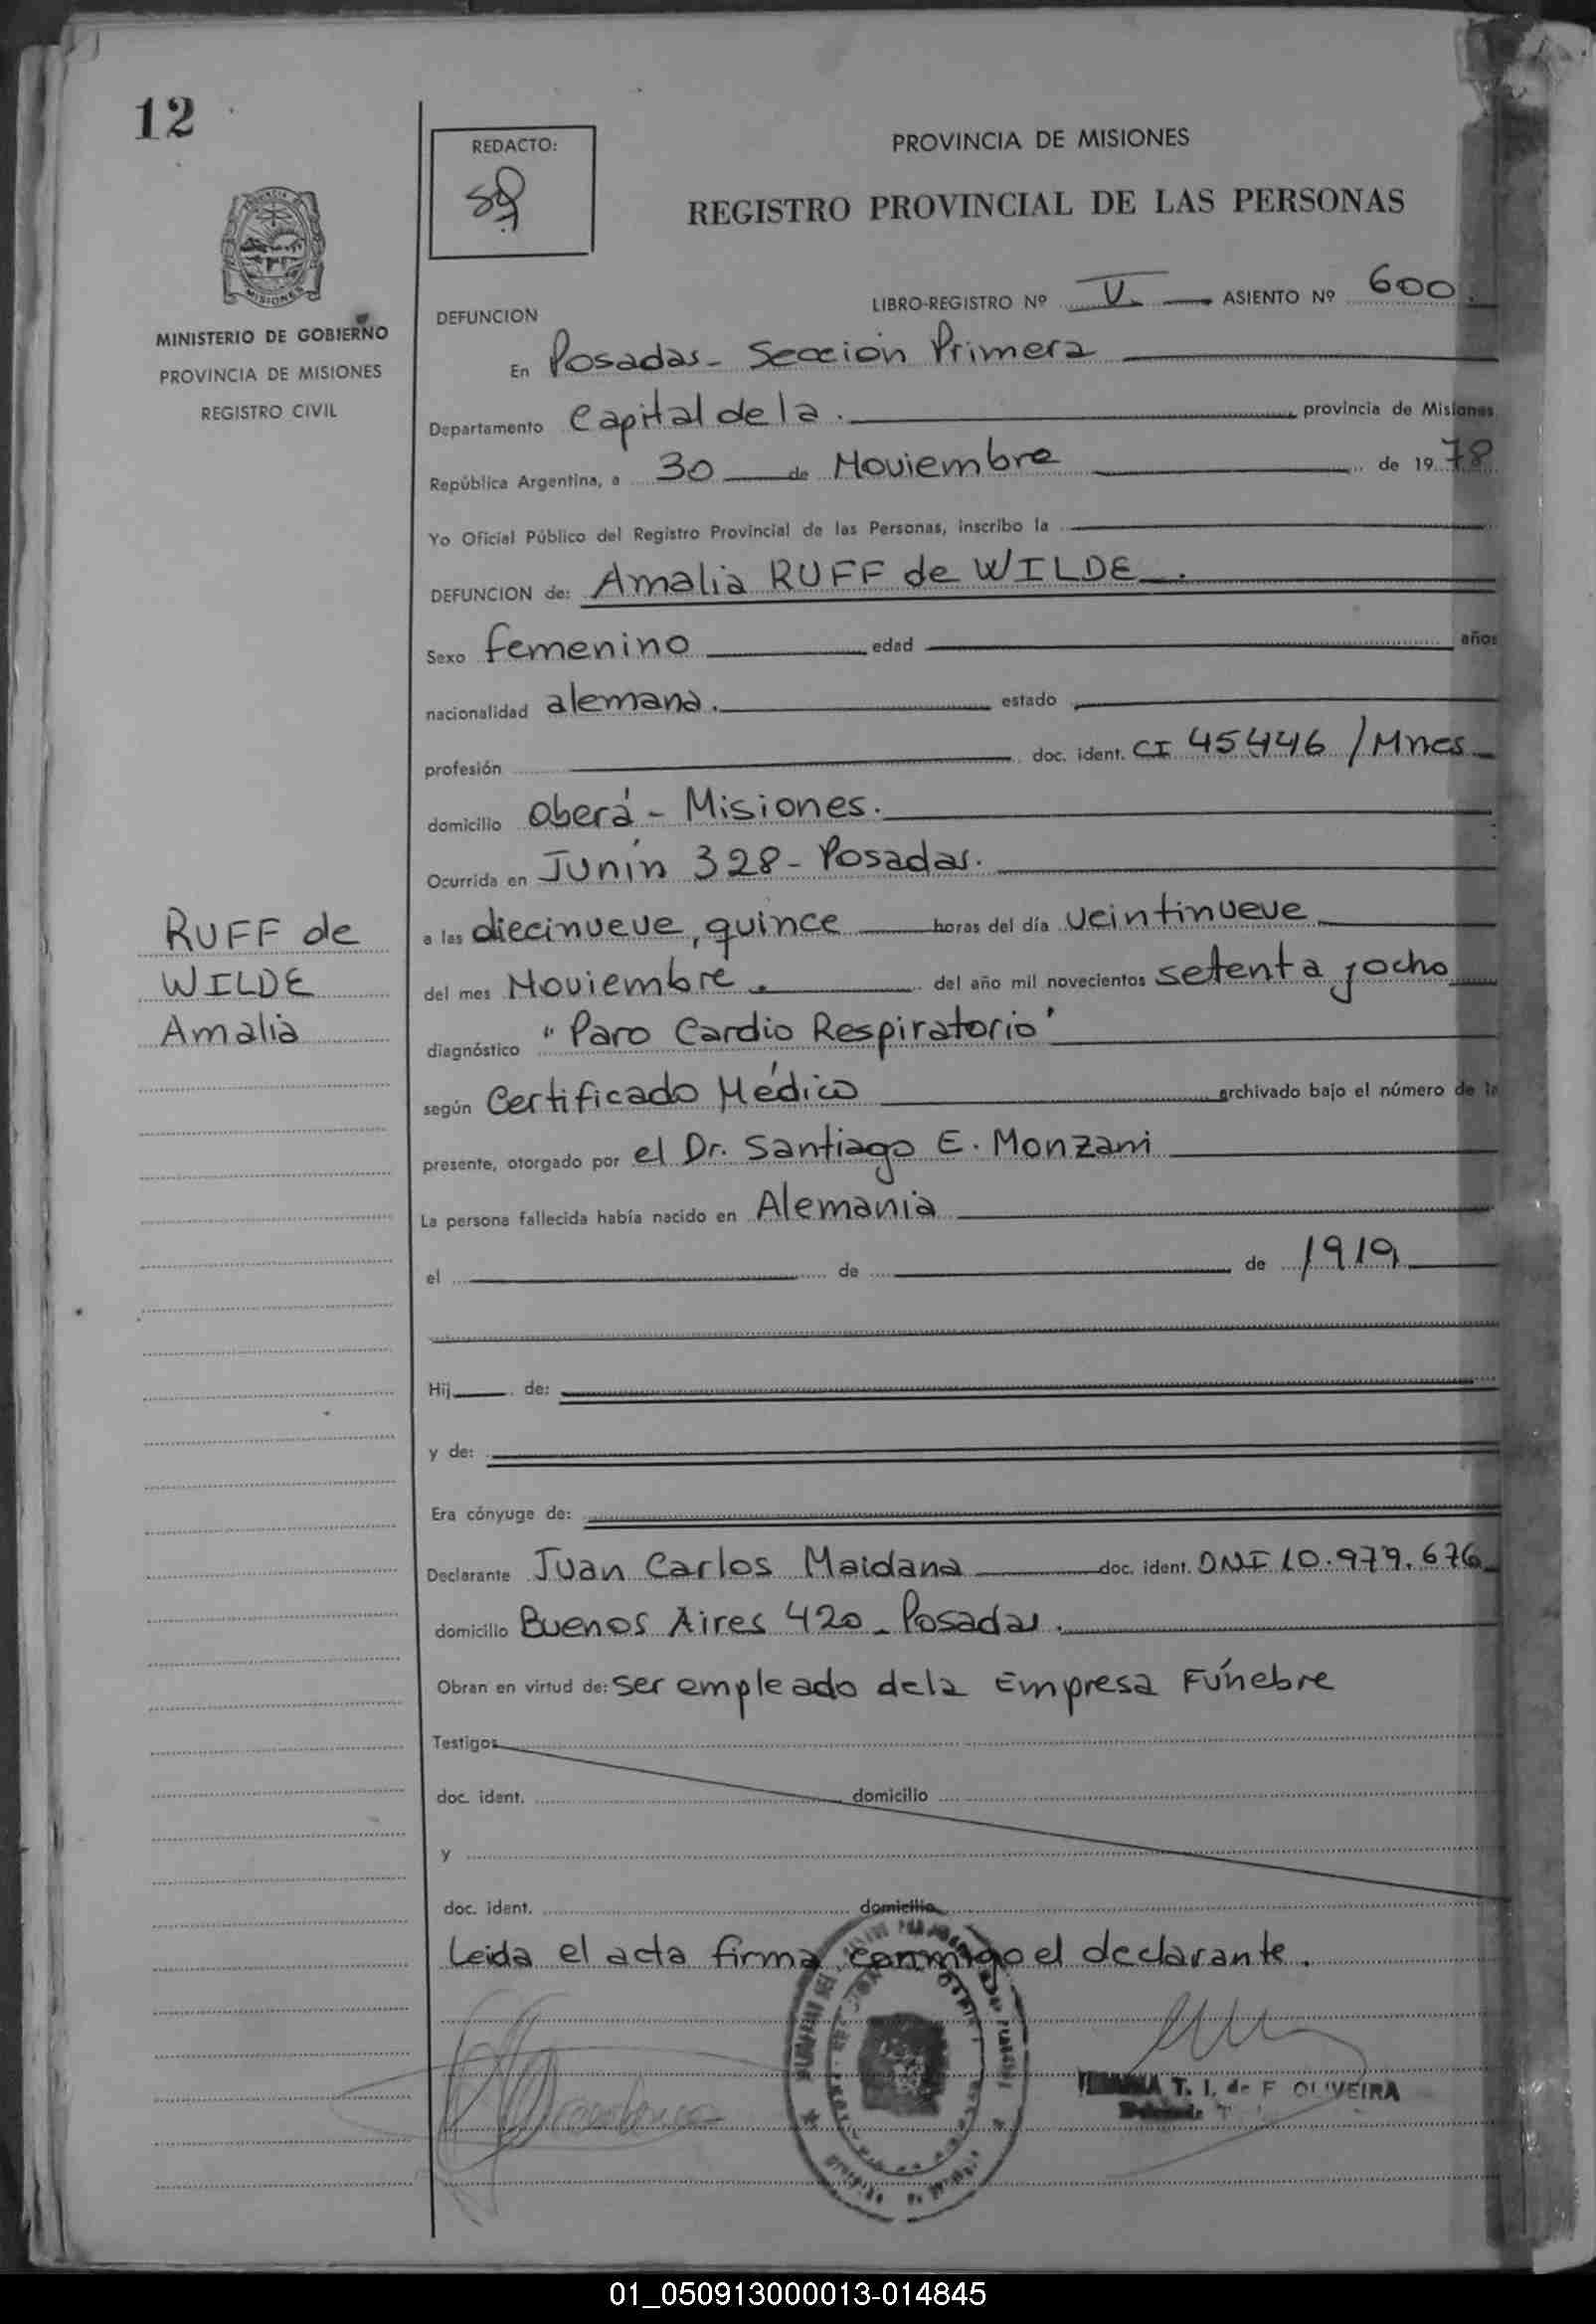 12
REDACTO:
PROVINCIA DE MISIONES
REGISTRO PROVINCIAL DE LAS PERSONAS
MISIONES
MINISTERIO DE GOBIERNO
PROVINCIA DE MISIONES
REGISTRO CIVIL
LIBRO-REGISTRO Nº V. ASIENTO Nº 600.
DEFUNCION
En Posadas - Sección Primera
Departamento Capital de la. provincia de Misiones
República Argentina, a 30 de Noviembre de 1978
Yo Oficial Público del Registro Provincial de las Personas, inscribo la
DEFUNCION de: Amalia RUFF de WILDE.
Sexo femenino edad años
nacionalidad alemana. estado
profesión doc. ident. CI 45446 / Mnes
domicilio Oberá - Misiones.
Ocurrida en Junín 328 - Posadas.
RUFF de
WILDE
Amalia
a las diecinueve, quince horas del día veintinueve
del mes Noviembre. del año mil novecientos setenta y ocho
diagnóstico "Paro Cardio Respiratorio"
según Certificado Médico archivado bajo el número de la
presente, otorgado por el Dr. Santiago E. Monzani
La persona fallecida había nacido en Alemania
el de de 1919
Hij de:
y de:
Era cónyuge de:
Declarante Juan Carlos Maidana doc. ident. DNI 10.979.676
domicilio Buenos Aires 420 - Posadas.
Obran en virtud de: ser empleado de la Empresa Fúnebre
Testigos
doc. ident. domicilio
y
doc. ident. domicilio
Leida el acta firma conmigo el declarante.
T. I. de F. OLIVEIRA
01_050913000013-014845